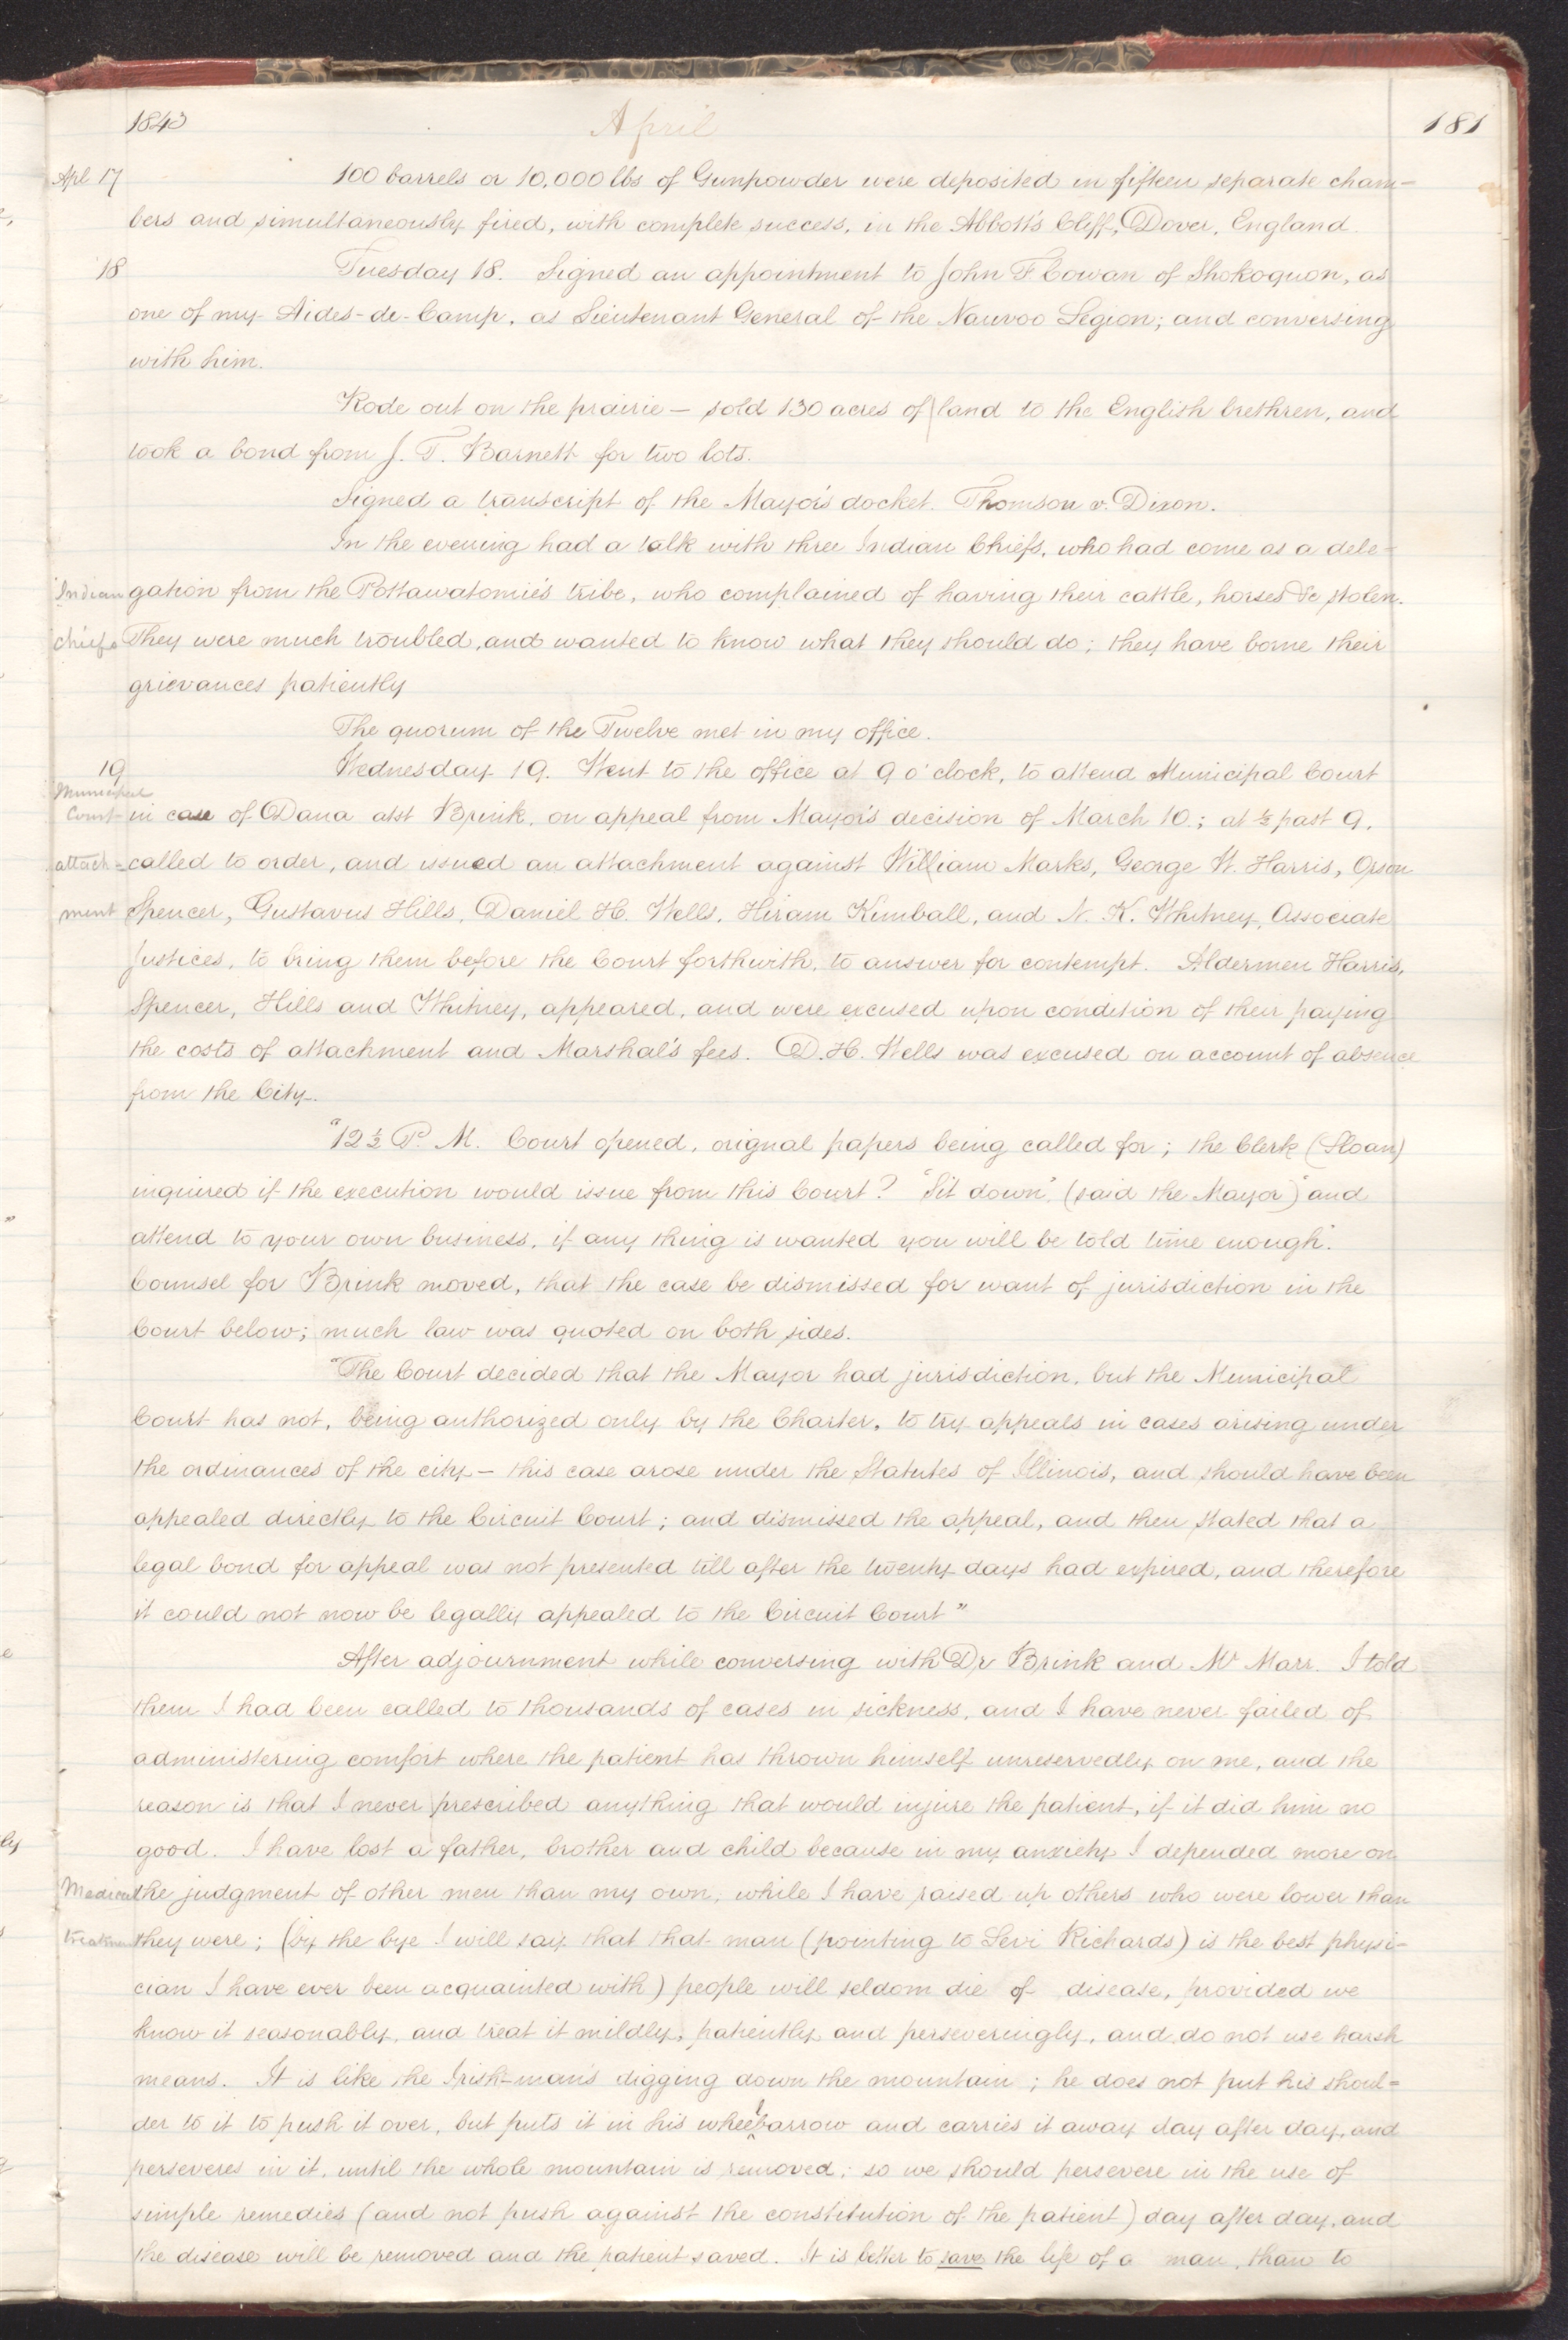 1843 April 181
Apl 17 100 barrels or 10,000 lbs of Gunpowder were deposited in fifteen separate cham-
bers and simultaneously fired, with complete success, in the Abbott's Cliff, Dover, England.
18 Tuesday 18. Signed an appointment to John F Cowan of Shokoquon, as
one of my Aides-de-Camp, as Lieutenant General of the Nauvoo Legion; and conversing
with him.
Rode out on the prairie — sold 130 acres of land to the English brethren, and
took a bond from J. T. Barnett for two lots.
Signed a transcript of the Mayor's docket. Thomson v. Dixon.
In the evening had a talk with three Indian Chiefs, who had come as a dele-
Indian gation from the Pottawatomie's tribe, who complained of having their cattle, horses &c stolen.
chiefs They were much troubled, and wanted to know what they should do; they have borne their
grievances patiently
The quorum of the Twelve met in my office.
19 Wednesday 19. Went to the office at 9 o'clock, to attend Municipal Court
Municipal
Court in case of Dana atst Brink, on appeal from Mayor's decision of March 10; at ½ past 9,
attach= called to order, and issued an attachment against William Marks, George W. Harris, Orson
ment Spencer, Gustavus Hills, Daniel H. Wells, Hiram Kimball, and N. K. Whitney, Associate
Justices, to bring them before the Court forthwith, to answer for contempt. Aldermen Harris,
Spencer, Hills and Whitney, appeared, and were excused upon condition of their paying
the costs of attachment and Marshal's fees. D. H. Wells was excused on account of absence
from the City.
"12½ P. M. Court opened, orignal papers being called for; the Clerk (Sloan)
inquired if the execution would issue from this Court? "Sit down", (said the Mayor) "and
attend to your own business, if any thing is wanted you will be told time enough."
Counsel for Brink moved, that the case be dismissed for want of jurisdiction in the
Court below; much law was quoted on both sides.
"The Court decided that the Mayor had jurisdiction, but the Municipal
Court has not, being authorized only by the Charter, to try appeals in cases arising under
the ordinances of the city — this case arose under the Statutes of Illinois, and should have been
appealed directly to the Circuit Court; and dismissed the appeal, and then stated that a
legal bond for appeal was not presented till after the twenty days had expired, and therefore
it could not now be legally appealed to the Circuit Court"
After adjournment while conversing with Dr Brink and Mr Marr. I told
them I had been called to thousands of cases in sickness, and I have never failed of
administering comfort where the patient has thrown himself unreservedly on me, and the
reason is that I never prescribed anything that would injure the patient, if it did him no
good. I have lost a father, brother and child because in my anxiety I depended more on
Medical the judgment of other men than my own, while I have raised up others who were lower than
treatment they were; (by the bye I will say that that man (pointing to Levi Richards) is the best physi-
cian I have ever been acquainted with) people will seldom die of disease, provided we
know it seasonably, and treat it mildly, patiently and perseveringly, and do not use harsh
means. It is like the Irish-man's digging down the mountain; he does not put his shoul=
der to it to push it over, but puts it in his wheelbarrow and carries it away day after day, and
perseveres in it, until the whole mountain is removed; so we should persevere in the use of
simple remedies (and not push against the constitution of the patient) day after day, and
the disease will be removed and the patient saved. It is better to save the life of a man, than to